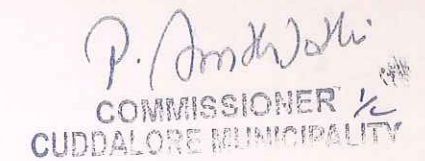 P.
COMMISSIONER I/c
CUDDALORE MUNICIPALITY